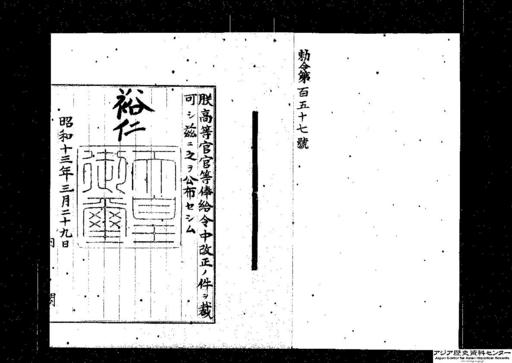 勅令第百五十七號
朕高等官官等俸給令中改正ノ件ヲ裁
可シ茲ニ之ヲ公布セシム
裕仁
天皇御璽
昭和十三年三月二十九日
内閣
アジア歴史資料センター
Japan Center for Asian Historical Records